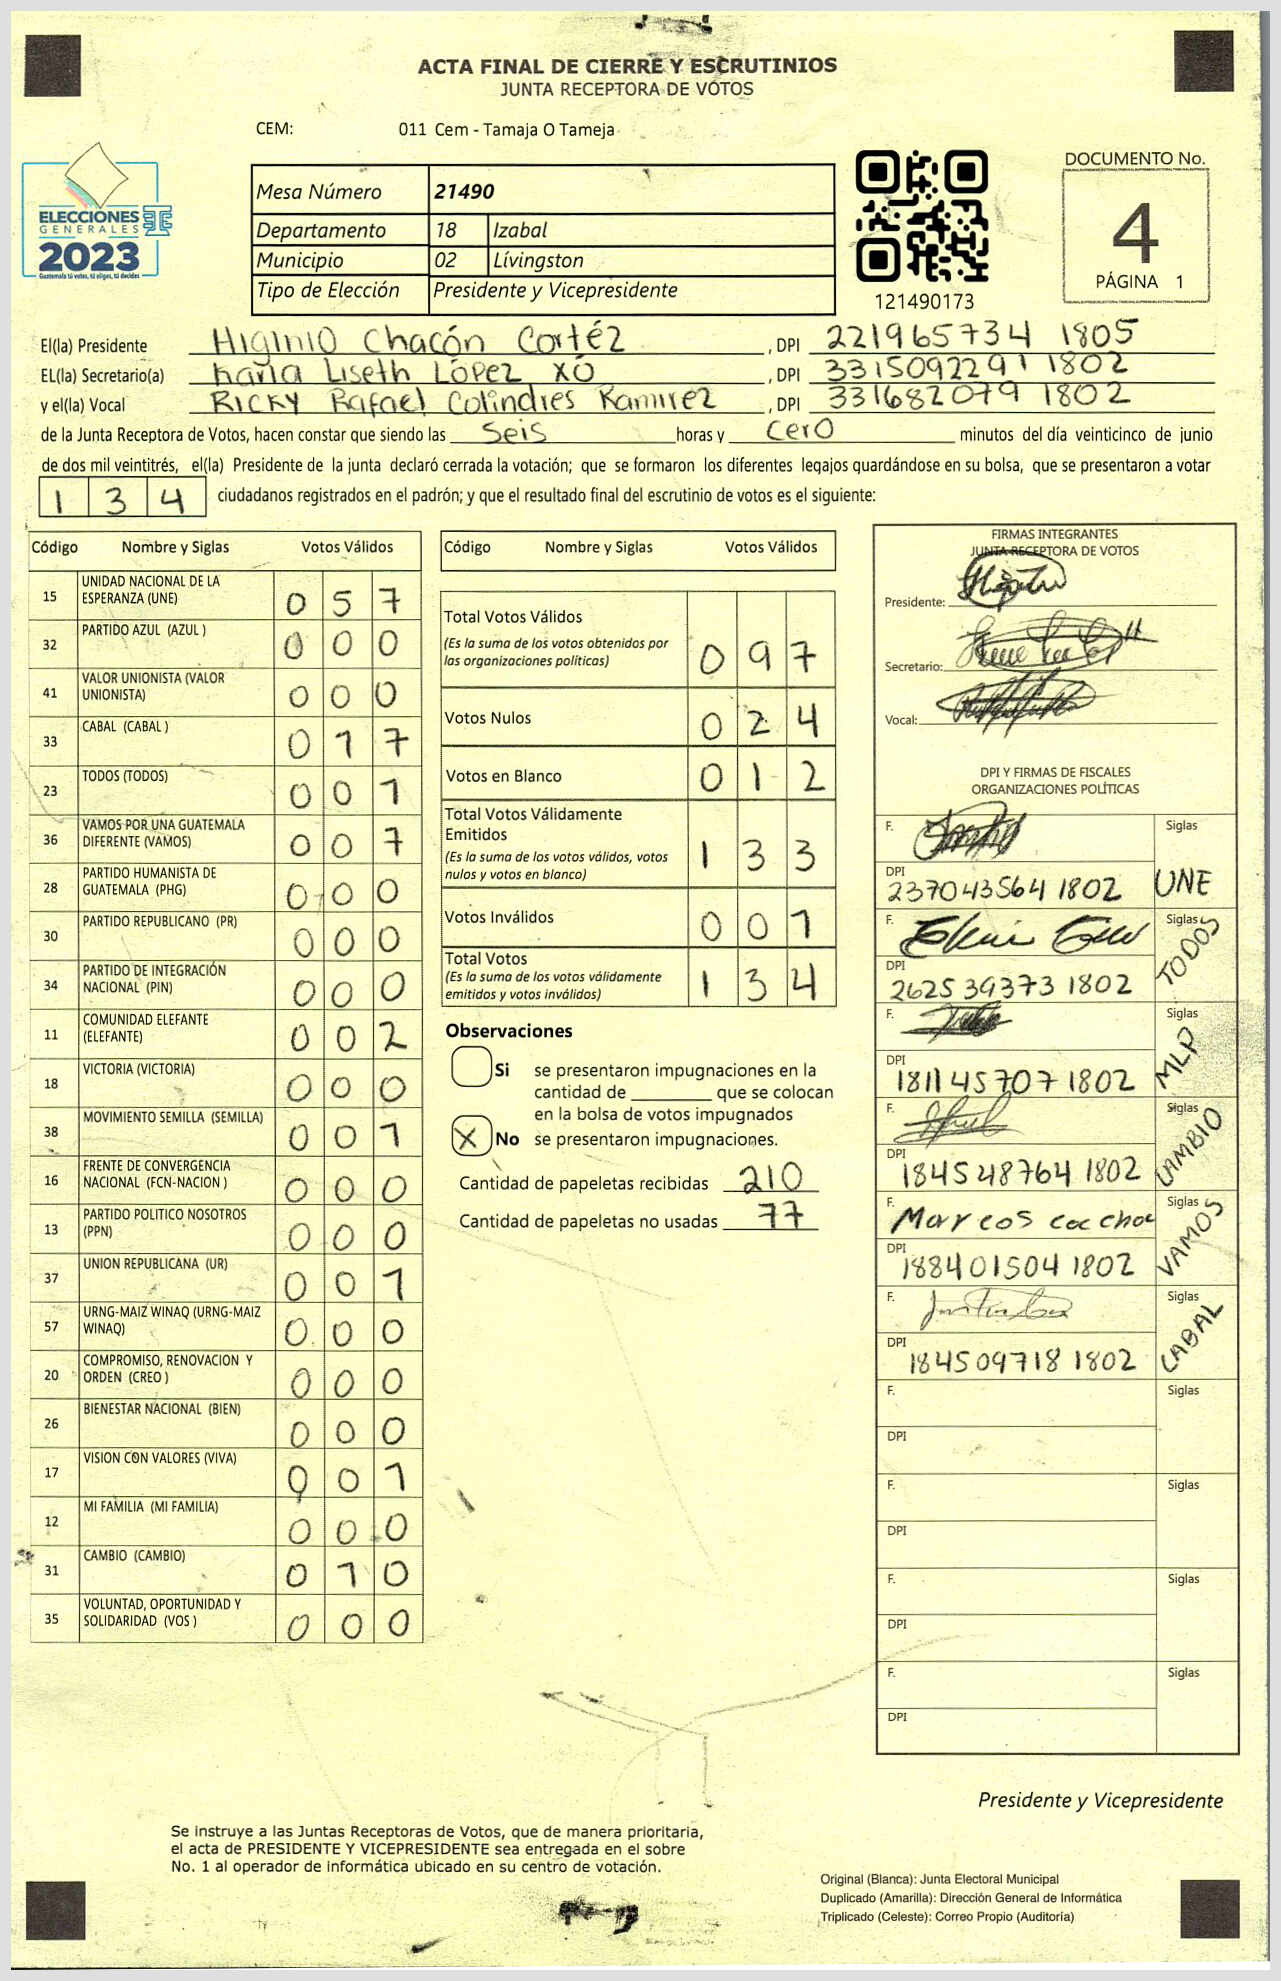 ACTA FINAL DE CIERRE Y ESCRUTINIOS
JUNTA RECEPTORA DE VOTOS
CEM: 011 Cem - Tamaja O Tameja
ELECCIONES
GENERALES
2023
Guatemala tú votas, tú eliges, tú decides
Mesa Número 21490
Departamento 18 Izabal
Municipio 02 Lívingston
Tipo de Elección Presidente y Vicepresidente
121490173
DOCUMENTO No.
4
PÁGINA 1
El(la) Presidente Higinio Chacón Cortéz, DPI 221965734 1805
EL(la) Secretario(a) Karla Liseth López XÓ, DPI 331509229 1 1802
y el(la) Vocal Ricky Rafael Colindres Ramirez, DPI 331682079 1802
de la Junta Receptora de Votos, hacen constar que siendo las Seis horas y cero minutos del día veinticinco de junio
de dos mil veintitrés, el(la) Presidente de la junta declaró cerrada la votación; que se formaron los diferentes legajos guardándose en su bolsa, que se presentaron a votar
134 ciudadanos registrados en el padrón; y que el resultado final del escrutinio de votos es el siguiente:
Código Nombre y Siglas Votos Válidos
15 UNIDAD NACIONAL DE LA ESPERANZA (UNE) 0 5 7
32 PARTIDO AZUL (AZUL ) 0 0 0
41 VALOR UNIONISTA (VALOR UNIONISTA) 0 0 0
33 CABAL (CABAL ) 0 1 7
23 TODOS (TODOS) 0 0 1
36 VAMOS POR UNA GUATEMALA DIFERENTE (VAMOS) 0 0 7
28 PARTIDO HUMANISTA DE GUATEMALA (PHG) 0 0 0
30 PARTIDO REPUBLICANO (PR) 0 0 0
34 PARTIDO DE INTEGRACIÓN NACIONAL (PIN) 0 0 0
11 COMUNIDAD ELEFANTE (ELEFANTE) 0 0 2
18 VICTORIA (VICTORIA) 0 0 0
38 MOVIMIENTO SEMILLA (SEMILLA) 0 0 1
16 FRENTE DE CONVERGENCIA NACIONAL (FCN-NACION ) 0 0 0
13 PARTIDO POLITICO NOSOTROS (PPN) 0 0 0
37 UNION REPUBLICANA (UR) 0 0 1
57 URNG-MAIZ WINAQ (URNG-MAIZ WINAQ) 0 0 0
20 COMPROMISO, RENOVACION Y ORDEN (CREO ) 0 0 0
26 BIENESTAR NACIONAL (BIEN) 0 0 0
17 VISION CON VALORES (VIVA) 0 0 1
12 MI FAMILIA (MI FAMILIA) 0 0 0
31 CAMBIO (CAMBIO) 0 1 0
35 VOLUNTAD, OPORTUNIDAD Y SOLIDARIDAD (VOS ) 0 0 0
Código Nombre y Siglas Votos Válidos
Total Votos Válidos
(Es la suma de los votos obtenidos por
las organizaciones políticas) 0 9 7
Votos Nulos 0 2 4
Votos en Blanco 0 1 2
Total Votos Válidamente
Emitidos
(Es la suma de los votos válidos, votos
nulos y votos en blanco) 1 3 3
Votos Inválidos 0 0 1
Total Votos
(Es la suma de los votos válidamente
emitidos y votos inválidos) 1 3 4
Observaciones
Si se presentaron impugnaciones en la
cantidad de ________ que se colocan
en la bolsa de votos impugnados
X No se presentaron impugnaciones.
Cantidad de papeletas recibidas 210
Cantidad de papeletas no usadas 77
FIRMAS INTEGRANTES
JUNTA RECEPTORA DE VOTOS
Presidente:
Secretario:
Vocal:
DPI Y FIRMAS DE FISCALES
ORGANIZACIONES POLÍTICAS
F. Siglas
DPI
237043564 1802 UNE
F. Siglas
DPI
2625 39373 1802 TODOS
F. Siglas
DPI
1811 45707 1802 MLP
F. Siglas
DPI
184548764 1802 CAMBIO
F. Marcos Siglas
DPI
188401504 1802 VAMOS
F. Siglas
DPI
184509718 1802 CABAL
F. Siglas
DPI
F. Siglas
DPI
F. Siglas
DPI
F. Siglas
DPI
Presidente y Vicepresidente
Se instruye a las Juntas Receptoras de Votos, que de manera prioritaria,
el acta de PRESIDENTE Y VICEPRESIDENTE sea entregada en el sobre
No. 1 al operador de informática ubicado en su centro de votación.
Original (Blanca): Junta Electoral Municipal
Duplicado (Amarilla): Dirección General de Informática
Triplicado (Celeste): Correo Propio (Auditoría)